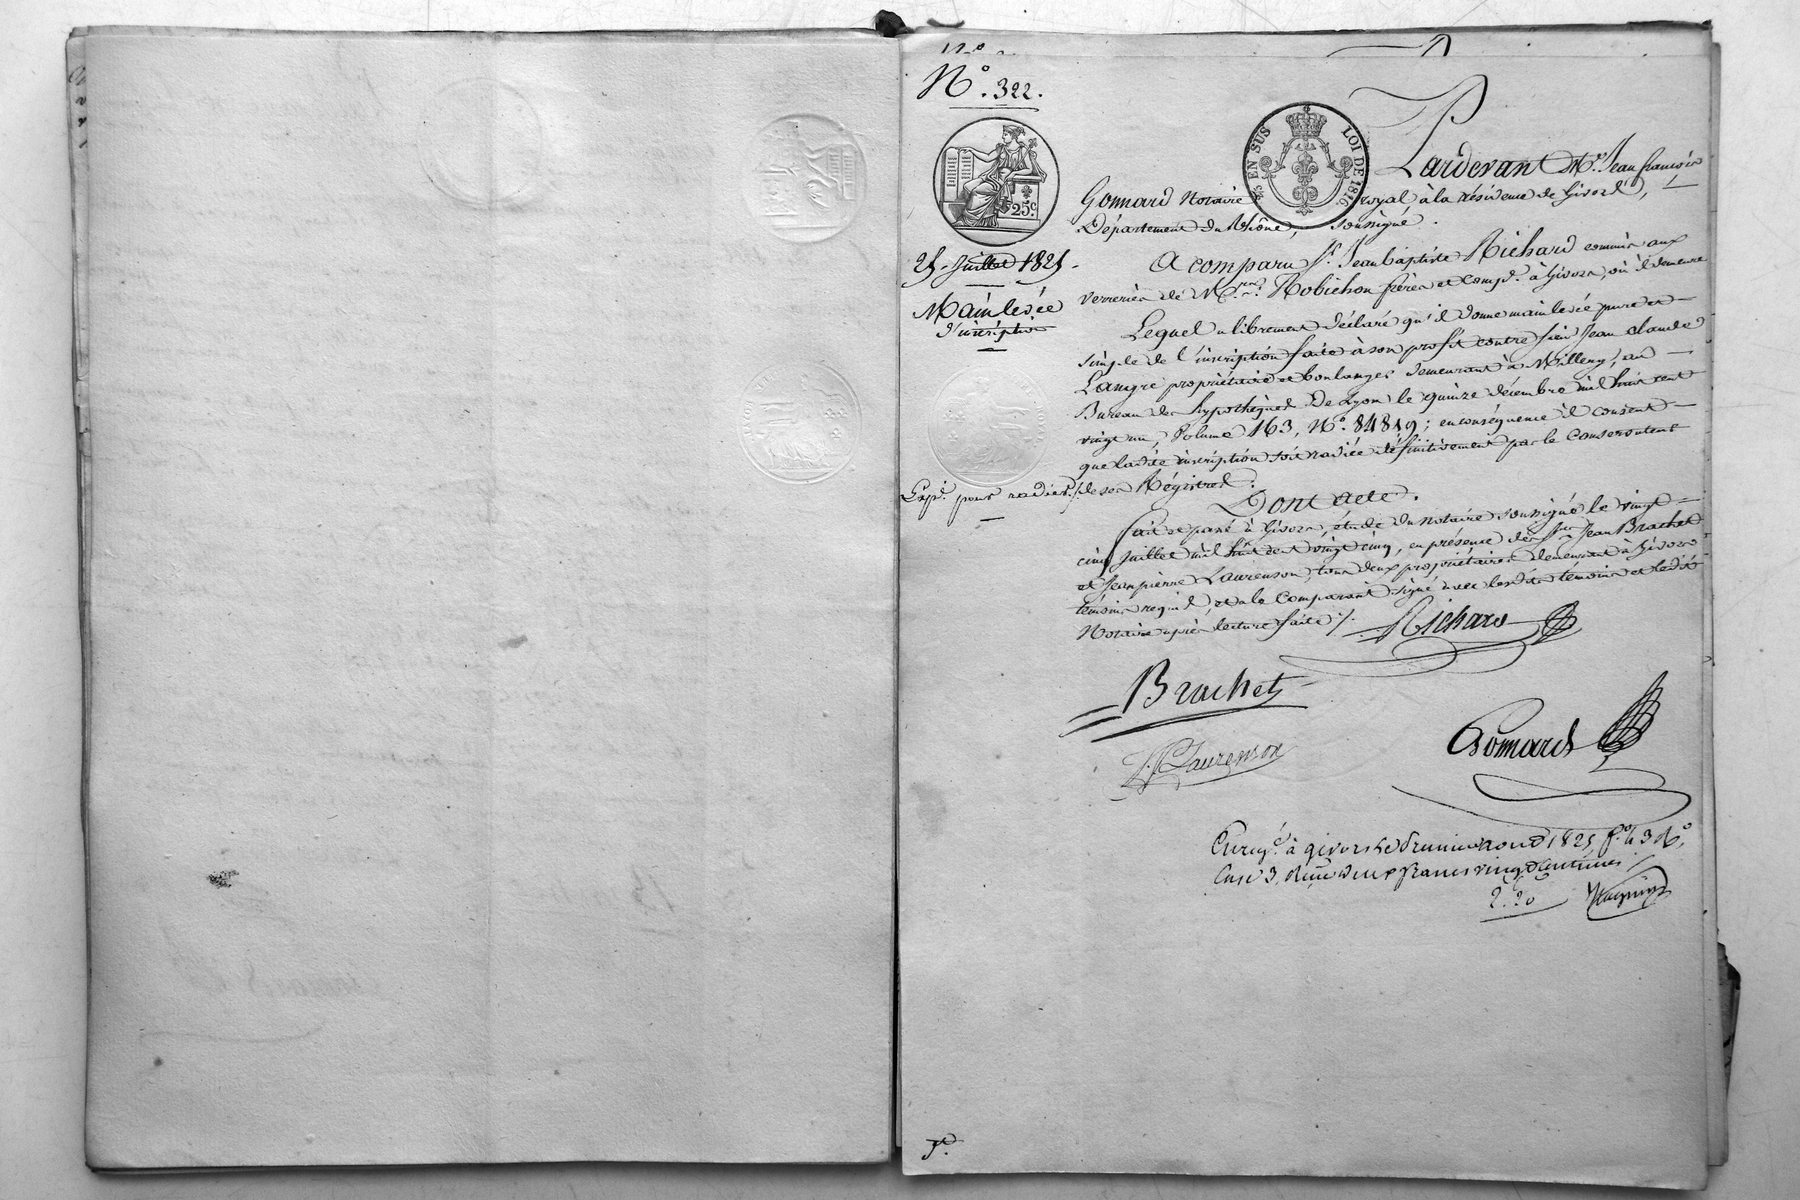 N.° 322.
25. Juillet 1825.
Mainlevée
d'inscription
Exp.on pour radier.
25.c
EN SUS
LOI DE 1816
Pardevant M.e Jean françois
Gonnard Notaire royal, à la résidence de Givors,
Département du Rhône, soussigné.
A comparu S.r Jean baptiste Richard commis aux
verreries de M.rs Robichon frères et Comp.e à Givors, où il demeure
Lequel a librement déclaré qu'il donne mainlevée pure et
simple de l'inscription faite à son profit contre sieur Jean claude
Langre propriétaire et boulanger demeurant à Milleny, au
Bureau des hypothèques De Lyon le quinze décembre mil huit cent
vingt un, Volume 163, N.° 84819; en conséquence il consent
que ladite inscription soit radiée définitivement par le Conservateur
de ses Régistres.
Dont acte.
fait et passé à Givors, étude du notaire soussigné le vingt
cinq juillet mil huit cent vingt cinq, en présence des S.rs Jean Brachet
et Jean pierre Laurenson, tous deux propriétaires demeurant à Givors
témoins requis, et a le Comparant signé avec lesdits témoins et ledit
Notaire après lecture faite ./.
Richard
Brachet
J. P Laurenson
Gonnard
Enreg.é à givors le premier aout 1825 f.° 43 R.°
Case 3, Reçu deux francs vingt centimes
2.20